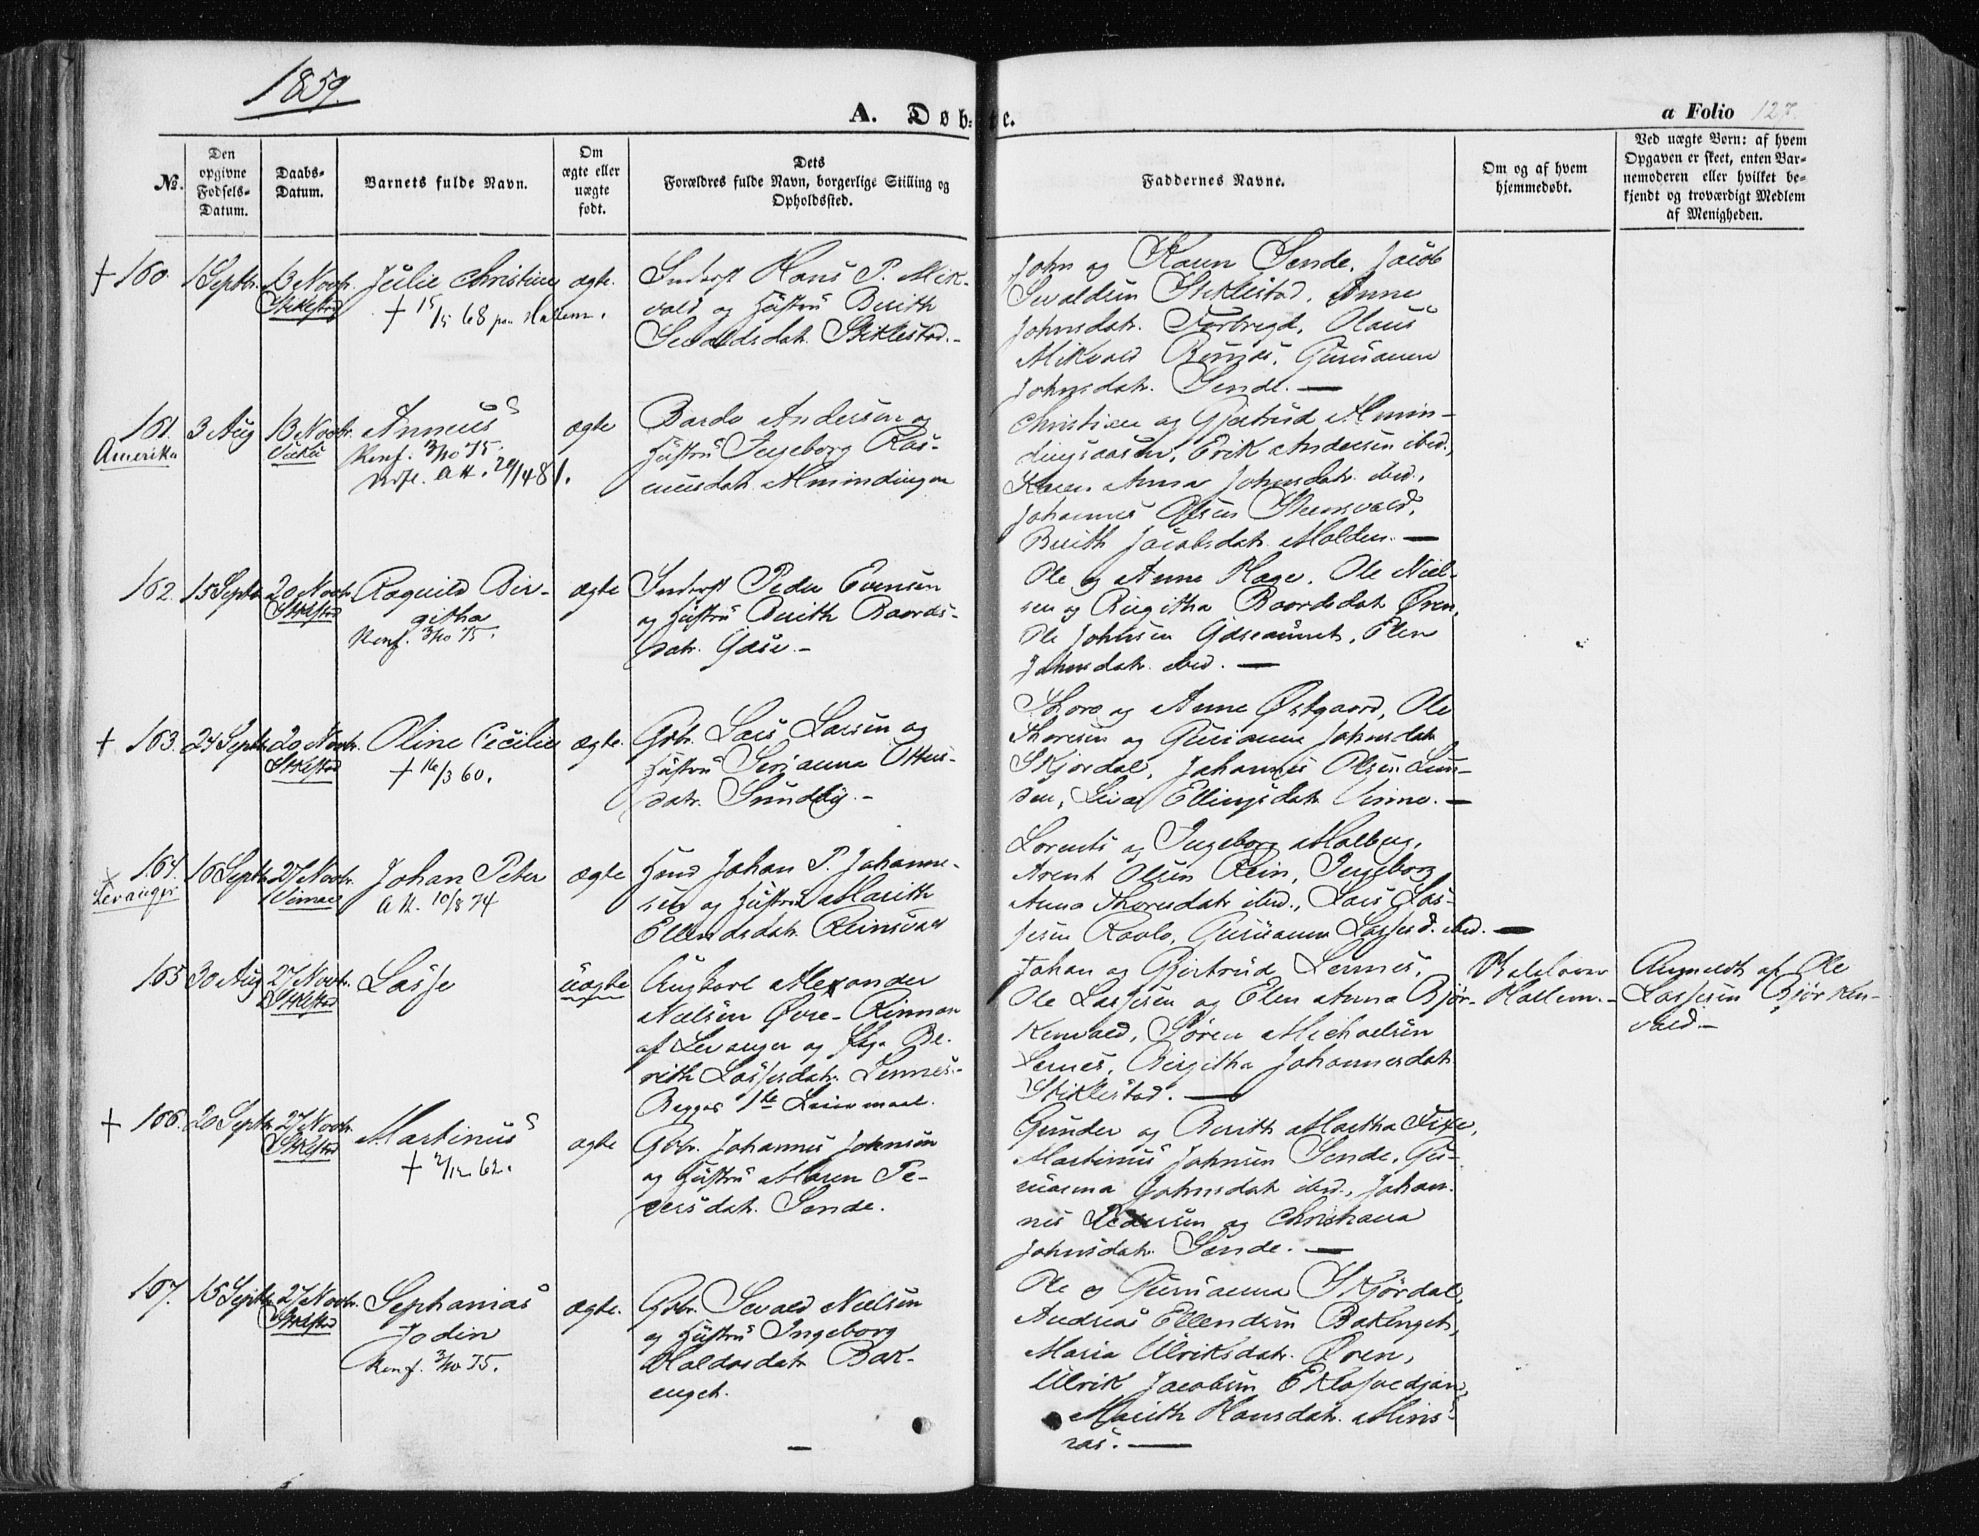 1859.
A. Døb= te.
a Folio 127.
№.
Den opgivne Fødsels-Datum.
Daabs-Datum.
Barnets fulde Navn.
Om ægte eller uægte født.
Dets Forældres fulde Navn, borgerlige Stilling og Opholdssted.
Faddernes Navne.
Om og af hvem hjemmedøbt.
Ved uægte Børn: af hvem
Opgaven er skeet, enten Bar-
nemoderen eller hvilket be-
kjendt og troværdigt Medlem
af Menigheden.
† 160.
1 Septbr.
13 Novbr.
Stiklestad
Julie Christine
† 15/5 68 paa Hallem.
ægte.
Inderst Hans P. Mik-
vold og Hustru Berith
Sevaldsdatr. Stiklestad.-
John og Karen Sende, Jacob
Sevaldsen Stiklestad, Anne
Johnsdatr. Forbregd, Olaus
Mikvold, Gurianna
Johnsdatr. Sende. —
161.
Amerika
3 Aug
13 Novbr.
Vuku
Annæus
Konf. 3/10 75.
Udfl. Att. 29/4 81.
ægte
Bardo Andersen og
Hustru Ingeborg Ras-
musdatr. Almindingen
Christian og Gjertrud Almin-
dingsaasen, Erik Andersen ibid.,
Karen Anna Johnsdatr. ibid.,
Johannes Olsen Steensvald,
Berith Jacobsdatr. Molden. —
162.
15 Septbr.
20 Novbr.
Stiklestad
Ragnild Bir-
githa
Konf. 3/10 75.
ægte
Inderst Peder Evensen
og Hustru Berith Baards-
datr. Gdse. -
Ole og Anne Hage, Ole Niel-
sen og Birgitha Baardsdatr. Øren,
Ole Johnsen, Elen
Johnsdatr. ibid. —
† 163.
24 Septbr.
20 Novbr.
Stiklestad
Oline Cecilie
† 16/3 60.
ægte.
Gbr. Lars Larsen og
Hustru Serianna Ottes-
datr. Sundby. -
Thore og Anne Østgaard, Ole
Thoresen og Gurianna Johnsdatr.
Skjørdal, Johannes Olsen Sun-
den, Ellingsdatr. Vinne. —
164.
Levanger
16 Septbr.
27 Novbr.
Vinnes
Johan Peter
Att. 10/8 74
ægte
Huusmd Johan P. Johanne-
sen og Hustru Marith
Ellendsdatr. Reinsvald
Lorents og Ingeborg Molberg,
Arent Olsen Rein, Ingeborg
Anna Thoresdatr. ibid., Lars Las-
sesen Ravlo, Gurianna Lassesd. ibid. —
165
30 Aug
27 Novbr.
Stiklestad
Lasse
uægte
Ungkarl Alexander
Nielsen Øvre-Rinnan
af Levanger og Pige Be-
rith Lassesdatr. Lennes.-
Begges 1ste Leiermaal.
Johan og Gjertrud Lennes,
Ole Lassesen og Elen Anna Bjør-
kenvald, Søren Michaelsen
Lennes, Birgitha Johannesdatr.
Stiklestad. —
Hallem. -
Anmeldt af Ole
Lassesen Bjørken-
vald —
† 166.
20 Septbr.
27 Novbr.
Stiklestad
Martinus
† 2/12 62.
ægte
Gbr. Johannes Johnsen
og Hustru Maren Pe-
dersdatr. Sende.
Gunder og Berith Martha,
Martinus Johnsen Sende, Gu-
rianna Johnsdatr. ibid., Johan-
nes Pedersen og Christiana
Johnsdatr. Sende. —
167.
15 Septbr.
27 Novbr.
Stiklestad
Sephanias
Jodin
Konf. 3/10 75.
ægte.
Gbr. Sevald Nielsen
og Hustru Ingeborg
Haldosdatr. Bak-
enget.
Ole og Gurianna Skjørdal,
Andreas Ellendsen Bakenget,
Maria Ulriksdatr. Øren,
Ulrik Jacobsen,
Marith Hansdatr. Mins-
aas. —